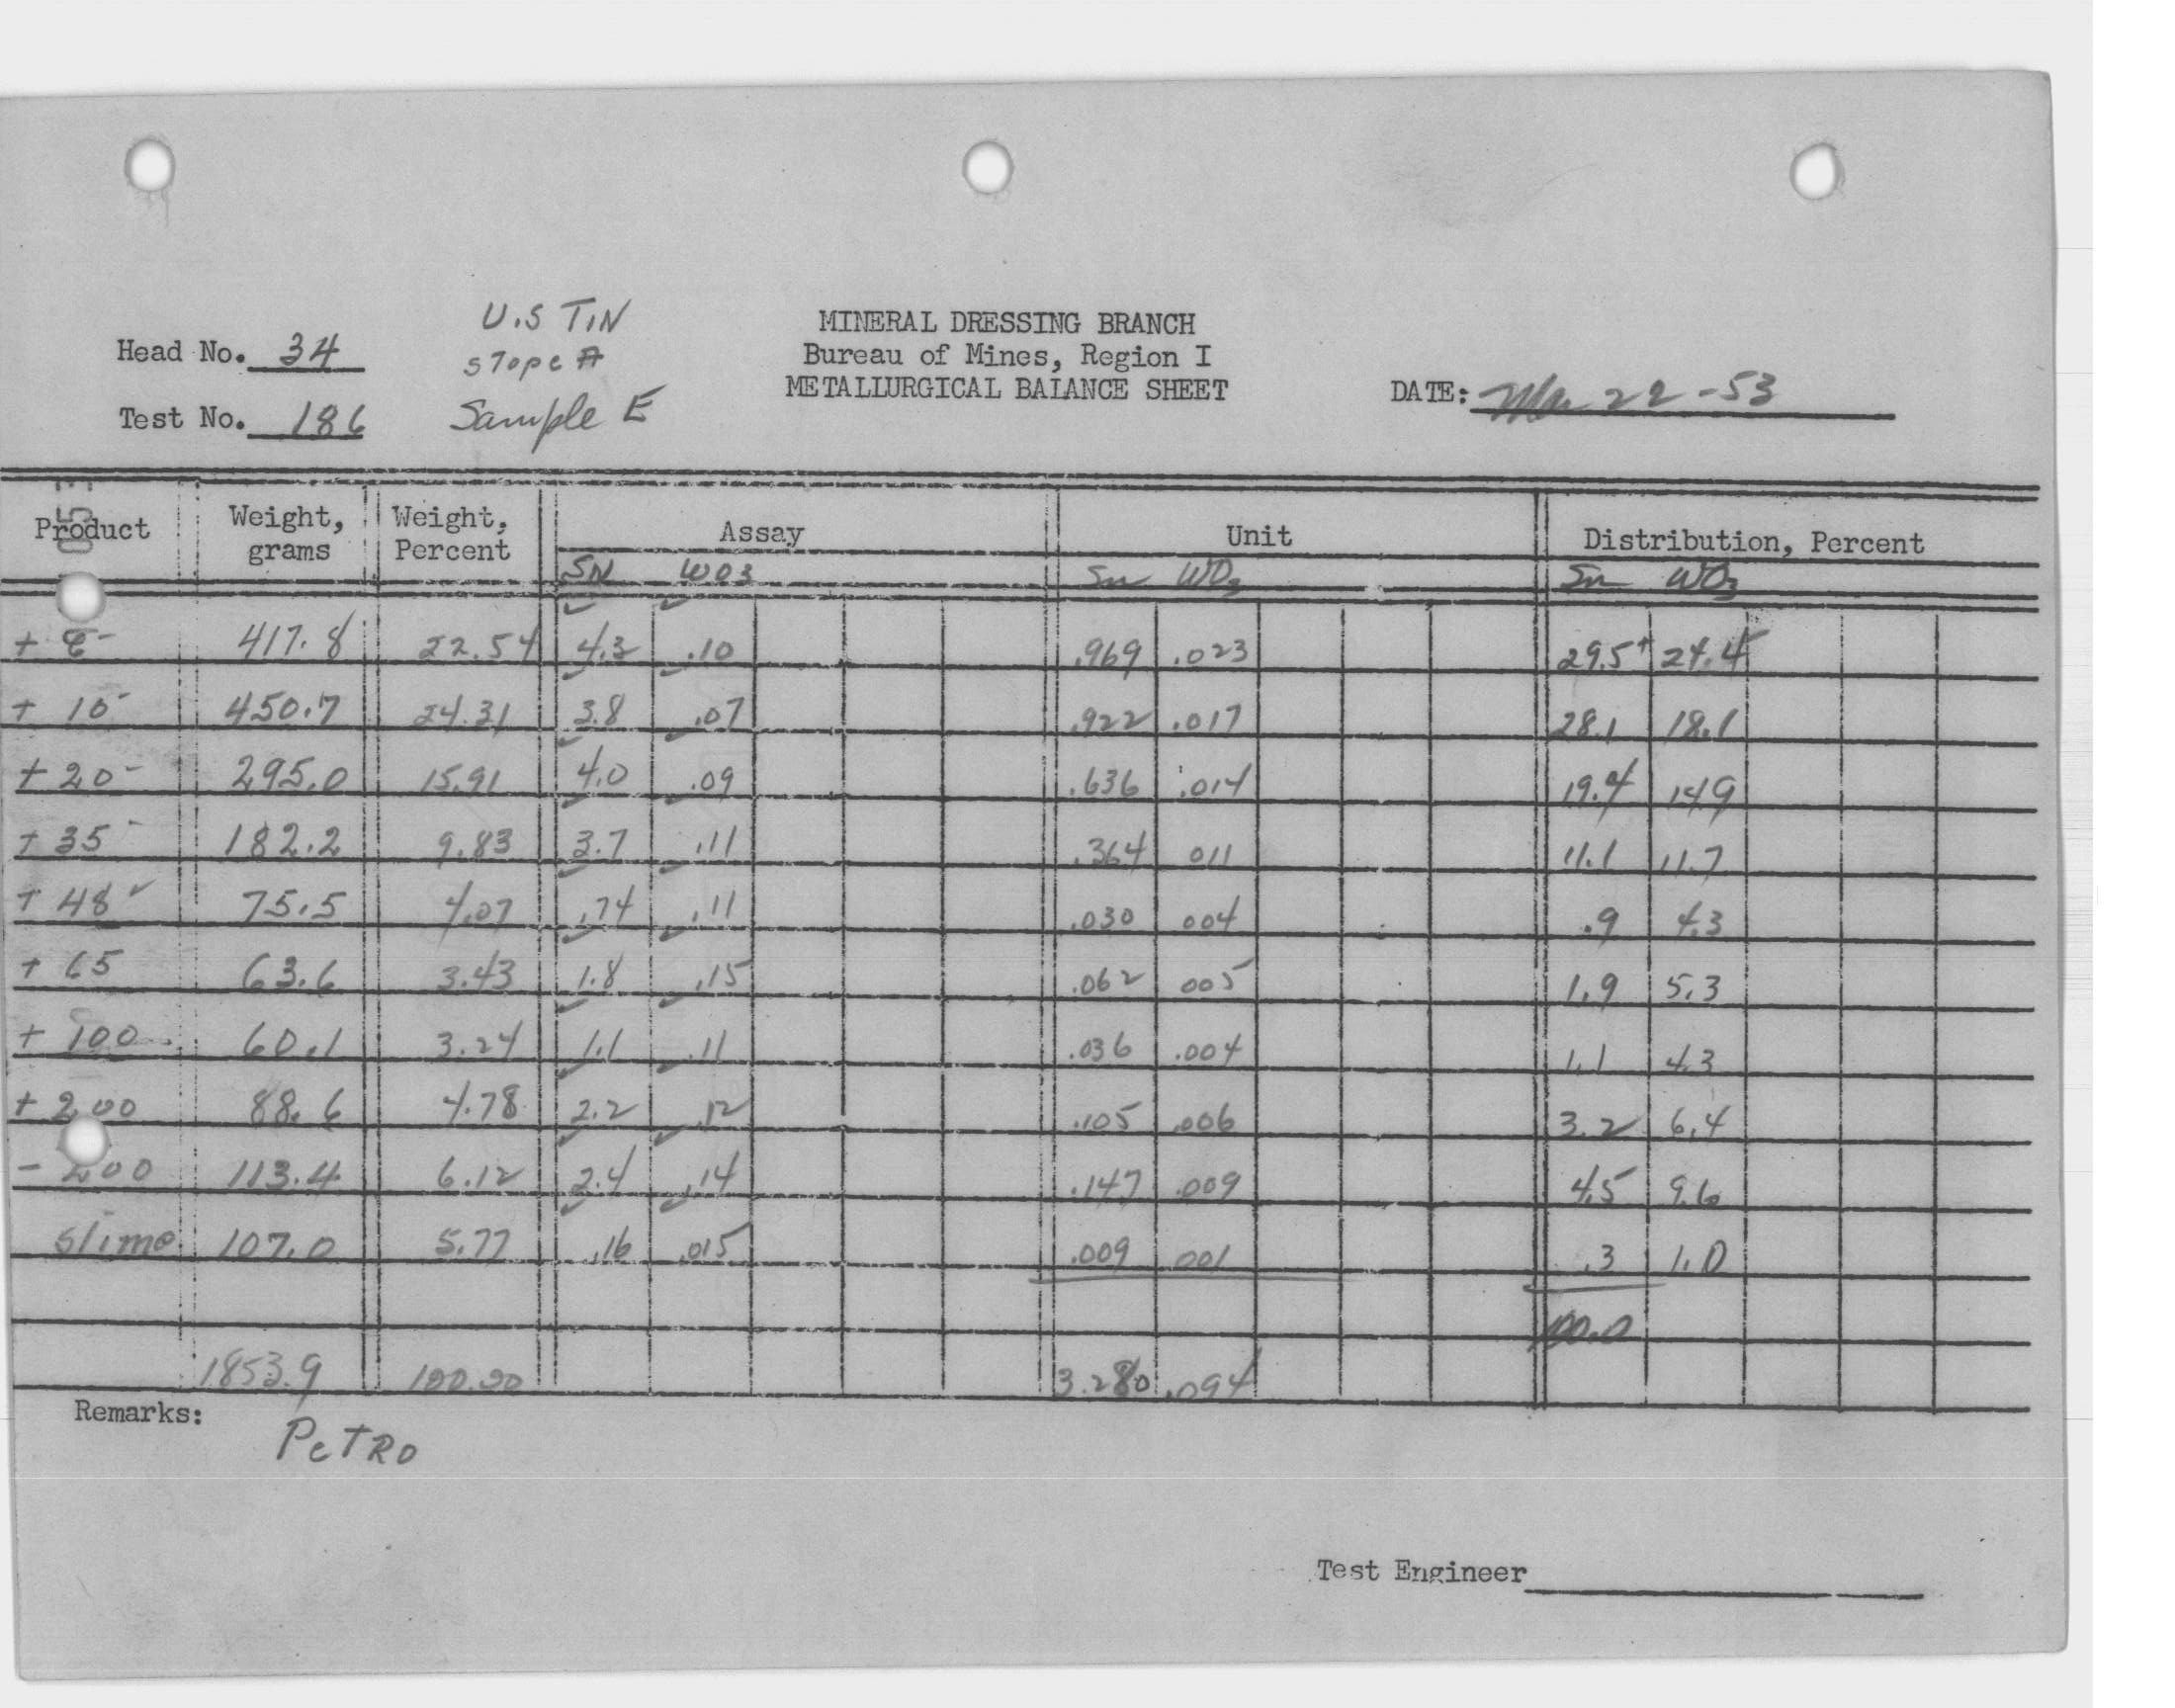 U.S TIN
Head No. 34
STOPE A
Test No. 186
Sample E
MINERAL DRESSING BRANCH
Bureau of Mines, Region I
METALLURGICAL BALANCE SHEET
DATE: 22-53
Product Weight, grams Weight, Percent Assay Unit Distribution, Percent
SN WO3 Sn WO3 Sn WO3
+ 417.8 22.54 4.3 .10 .969 .023 29.5+ 24.4
+ 10 450.7 24.31 3.8 .07 .922 .017 28.1 18.1
+ 20 295.0 15.91 4.0 .09 .636 .014 19.4 14.9
+ 35 182.2 9.83 3.7 .11 .364 011 11.1 11.7
+ 48 75.5 4.07 .74 .11 .030 004 .9 4.3
+ 65 63.6 3.43 1.8 .15 .062 005 1.9 5.3
+ 100 60.1 3.24 1.1 .11 .036 .004 1.1 4.3
+ 200 88.6 4.78 2.2 .12 .105 .006 3.2 6.4
- 200 113.4 6.12 2.4 .14 .147 .009 4.5 9.6
slime 107.0 5.77 .16 .015 .009 001 .3 1.0
100.0
1853.9 100.00 3.280 .094
Remarks:
PETRO
Test Engineer